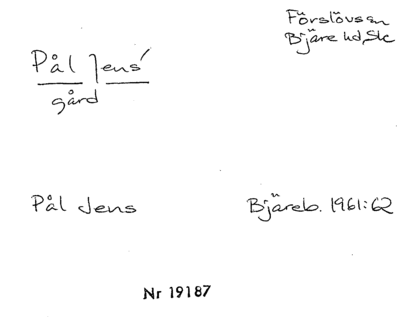 Förslövs sn
Bjäre hd, Skc
Pål Jens'
gård
Pål Jens
Bjäreb. 1961:62
Nr 19187